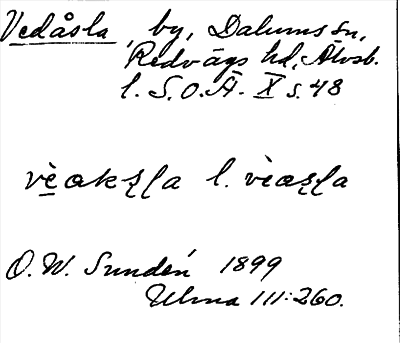 Vedåsla, by, Dalums sn,
Redvägs hd, Älvsb.
l. S.O.Ä. X s. 48
l.
O. W. Sundén 1899
Ulma III:260.